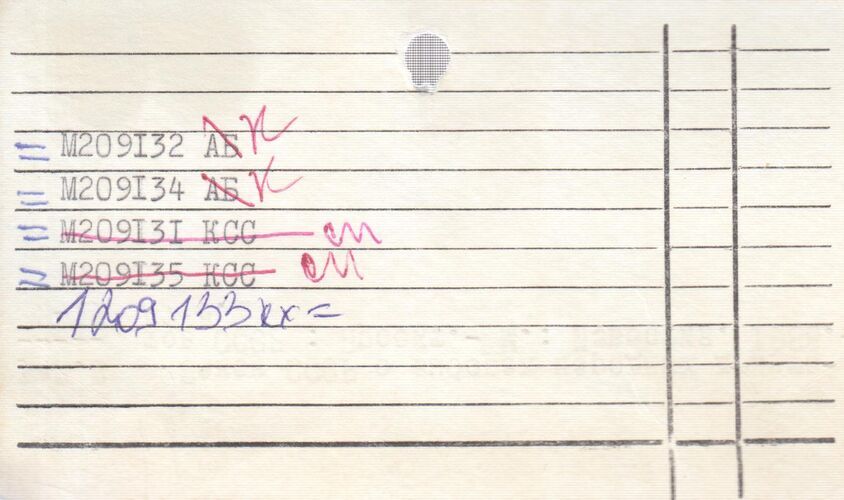 = М209I32 АБ К
= М209I34 АБ К
= М209I3I КСС сп
= М209I35 КСС сп
1209133кх=